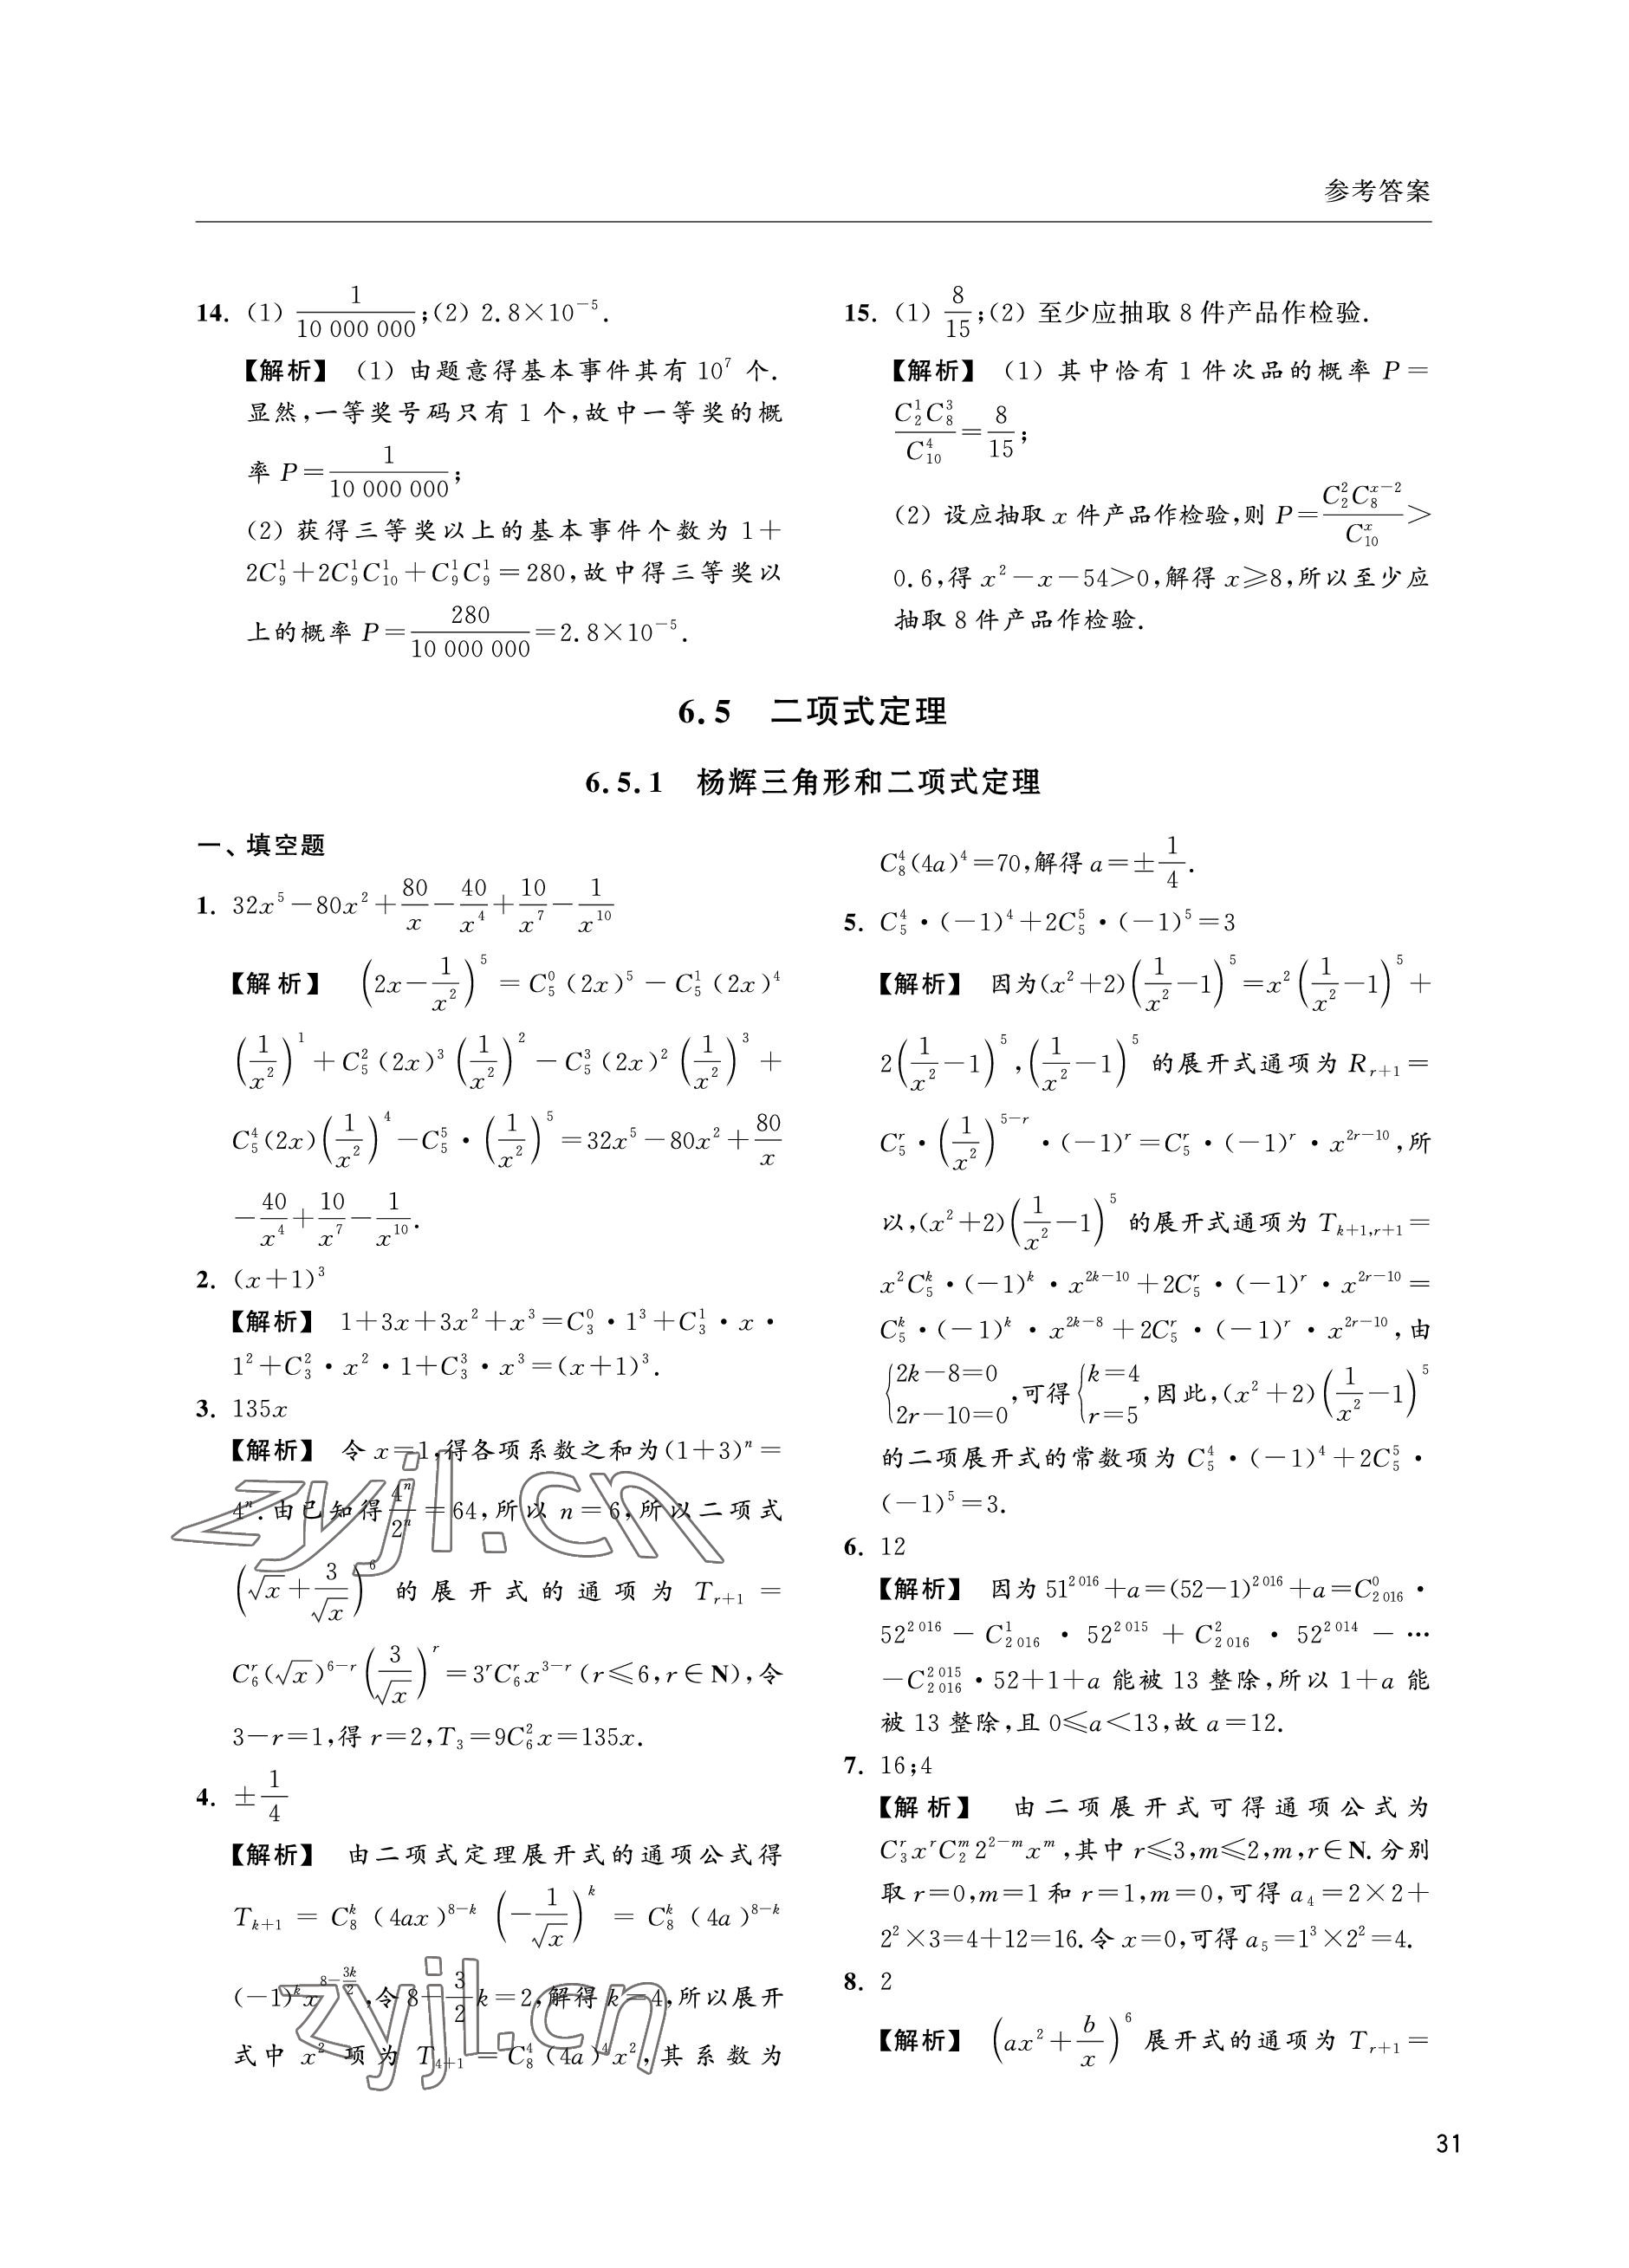 参考答案
14. (1) \frac{1}{10 000 000};(2) 2.8×10^{-5}.
【解析】 (1) 由题意得基本事件共有 10^7 个.
显然,一等奖号码只有 1 个,故中一等奖的概
率 P=\frac{1}{10 000 000};
(2) 获得三等奖以上的基本事件个数为 1+
2C_9^1+2C_9^1C_{10}^1+C_9^1C_9^1=280,故中得三等奖以
上的概率 P=\frac{280}{10 000 000}=2.8×10^{-5}.
15. (1) \frac{8}{15};(2) 至少应抽取 8 件产品作检验.
【解析】 (1) 其中恰有 1 件次品的概率 P=
\frac{C_2^1C_8^3}{C_{10}^4}=\frac{8}{15};
(2) 设应抽取 x 件产品作检验,则 P=\frac{C_2^2C_8^{x-2}}{C_{10}^x}>
0.6,得 x^2-x-54>0,解得 x≥8,所以至少应
抽取 8 件产品作检验.
6.5 二项式定理
6.5.1 杨辉三角形和二项式定理
一、填空题
1. 32x^5-80x^2+\frac{80}{x}-\frac{40}{x^4}+\frac{10}{x^7}-\frac{1}{x^{10}}
【解析】 (2x-\frac{1}{x^2})^5=C_5^0(2x)^5-C_5^1(2x)^4
(\frac{1}{x^2})^1+C_5^2(2x)^3(\frac{1}{x^2})^2-C_5^3(2x)^2(\frac{1}{x^2})^3+
C_5^4(2x)(\frac{1}{x^2})^4-C_5^5·(\frac{1}{x^2})^5=32x^5-80x^2+\frac{80}{x}
-\frac{40}{x^4}+\frac{10}{x^7}-\frac{1}{x^{10}}.
2. (x+1)^3
【解析】 1+3x+3x^2+x^3=C_3^0·1^3+C_3^1·x·
1^2+C_3^2·x^2·1+C_3^3·x^3=(x+1)^3.
3. 135x
【解析】 令 x=1,得各项系数之和为(1+3)^n=
4^n.由已知得\frac{4^n}{2^n}=64,所以 n=6,所以二项式
(\sqrt{x}+\frac{3}{\sqrt{x}})^6 的展开式的通项为 T_{r+1}=
C_6^r(\sqrt{x})^{6-r}(\frac{3}{\sqrt{x}})^r=3^rC_6^rx^{3-r}(r≤6,r∈N),令
3-r=1,得 r=2,T_3=9C_6^2x=135x.
4. ±\frac{1}{4}
【解析】 由二项式定理展开式的通项公式得
T_{k+1}=C_8^k(4ax)^{8-k}(-\frac{1}{\sqrt{x}})^k=C_8^k(4a)^{8-k}
(-1)^kx^{8-\frac{3k}{2}},令 8-\frac{3}{2}k=2,解得 k=4,所以展开
式中 x^2 项为 T_{4+1}=C_8^4(4a)^4x^2,其系数为
C_8^4(4a)^4=70,解得 a=±\frac{1}{4}.
5. C_5^4·(-1)^4+2C_5^5·(-1)^5=3
【解析】 因为(x^2+2)(\frac{1}{x^2}-1)^5=x^2(\frac{1}{x^2}-1)^5+
2(\frac{1}{x^2}-1)^5,(\frac{1}{x^2}-1)^5 的展开式通项为 R_{r+1}=
C_5^r·(\frac{1}{x^2})^{5-r}·(-1)^r=C_5^r·(-1)^r·x^{2r-10},所
以,(x^2+2)(\frac{1}{x^2}-1)^5 的展开式通项为 T_{k+1,r+1}=
x^2C_5^k·(-1)^k·x^{2k-10}+2C_5^r·(-1)^r·x^{2r-10}=
C_5^k·(-1)^k·x^{2k-8}+2C_5^r·(-1)^r·x^{2r-10},由
{2k-8=0 2r-10=0,可得{k=4 r=5,因此,(x^2+2)(\frac{1}{x^2}-1)^5
的二项展开式的常数项为 C_5^4·(-1)^4+2C_5^5·
(-1)^5=3.
6. 12
【解析】 因为 51^{2 016}+a=(52-1)^{2 016}+a=C_{2 016}^0·
52^{2 016}-C_{2 016}^1·52^{2 015}+C_{2 016}^2·52^{2 014}-…
-C_{2 016}^{2 015}·52+1+a 能被 13 整除,所以 1+a 能
被 13 整除,且 0≤a<13,故 a=12.
7. 16;4
【解析】 由二项展开式可得通项公式为
C_3^rx^rC_2^m2^{2-m}x^m,其中 r≤3,m≤2,m,r∈N.分别
取 r=0,m=1 和 r=1,m=0,可得 a_4=2×2+
2^2×3=4+12=16.令 x=0,可得 a_5=1^3×2^2=4.
8. 2
【解析】 (ax^2+\frac{b}{x})^6 展开式的通项为 T_{r+1}=
zyjl.cn
zyjl.cn
31